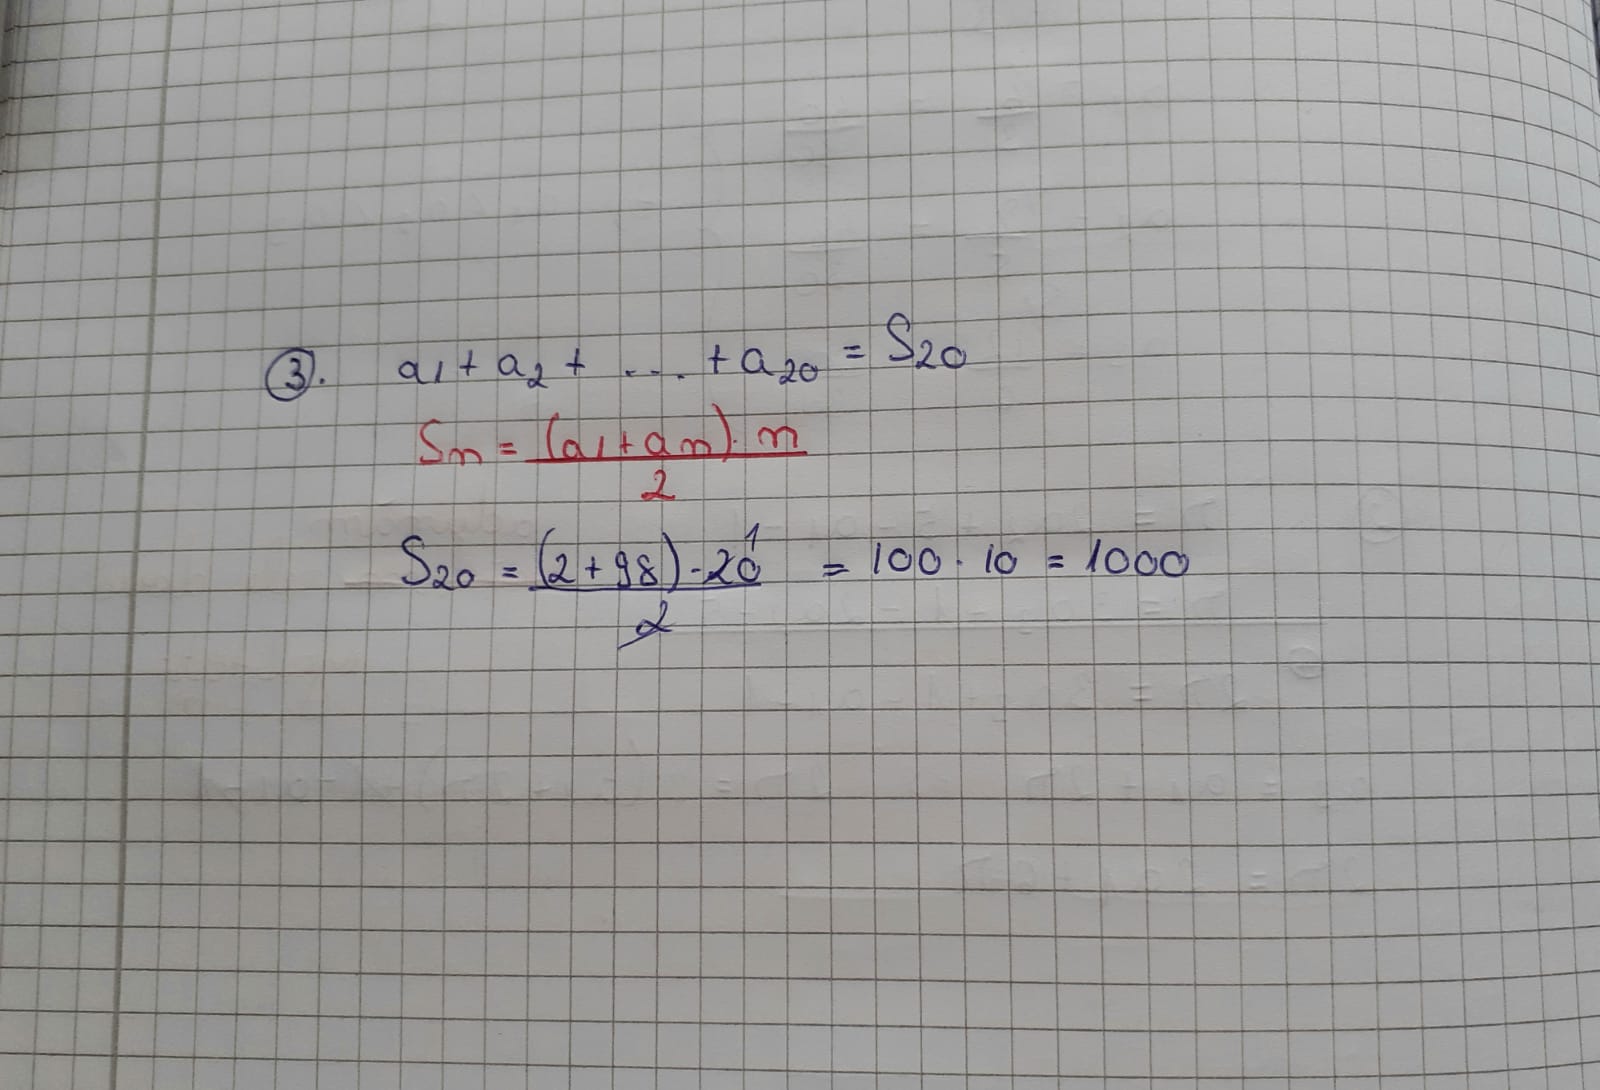 3. a1 + a2 + ... + a20 = S20
Sn = (a1 + an) · n
2
S20 = (2 + 98) · 20 = 100 · 10 = 1000
2